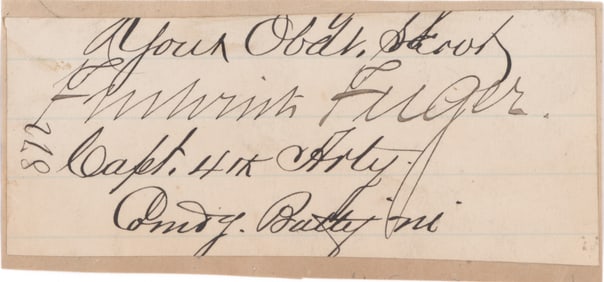 Your Obdt. Servt
Frederick Fuger.
Capt. 4th Arty.
Comdg. Batty
872